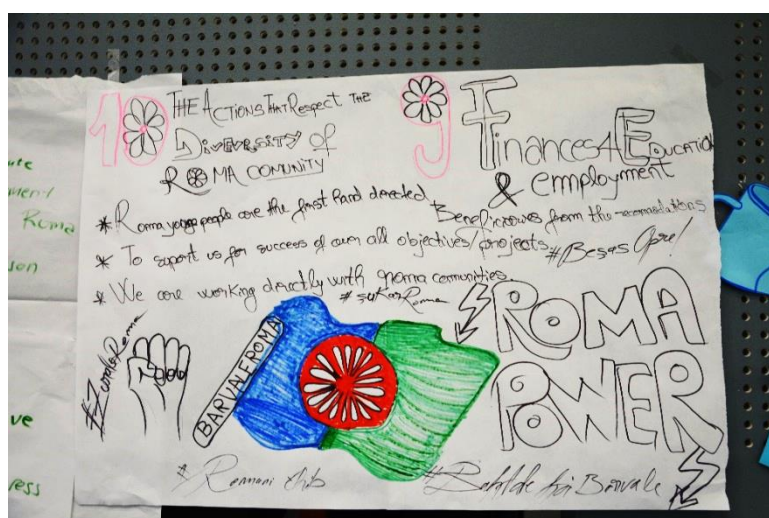 10 THE ACTIONS THAT RESPECT THE
DIVERSITY OF
ROMA COMUNITY
9 Finances 4 EDUCATION
& employment
* Roma young people are the first hand directed
Beneficiaries from the
* To suport us for success of over all objectives/projects
#Beşas Opre!
* We are working directly with roma comunities
#sukarRoma
ROMA
POWER
#ZuraleRoma
BARVALEROMA
# Romani chib
#Baxtale hai Barvale
ute
ment
Roma
son
ve
ess